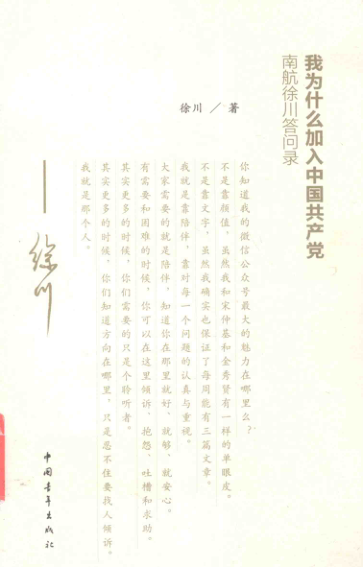 我为什么加入中国共产党
南航徐川答问录
徐川／著
你知道我的微信公众号最大的魅力在哪里么？
不是靠颜值，虽然我和宋仲基和金秀贤有一样的单眼皮。
不是靠文字，虽然我确实也保证了每周能有三篇文章。
我就是靠陪伴，靠对每一个问题的认真与重视。
大家需要的就是陪伴，知道你在那里就好、就够，就安心。
有需要和困难的时候，你可以在这里倾诉、抱怨、吐槽和求助。
其实更多的时候，你们需要的只是个聆听者。
其实更多的时候，你们知道方向在哪里，只是忍不住要找人倾诉。
我就是那个人。
——徐川
中国青年出版社